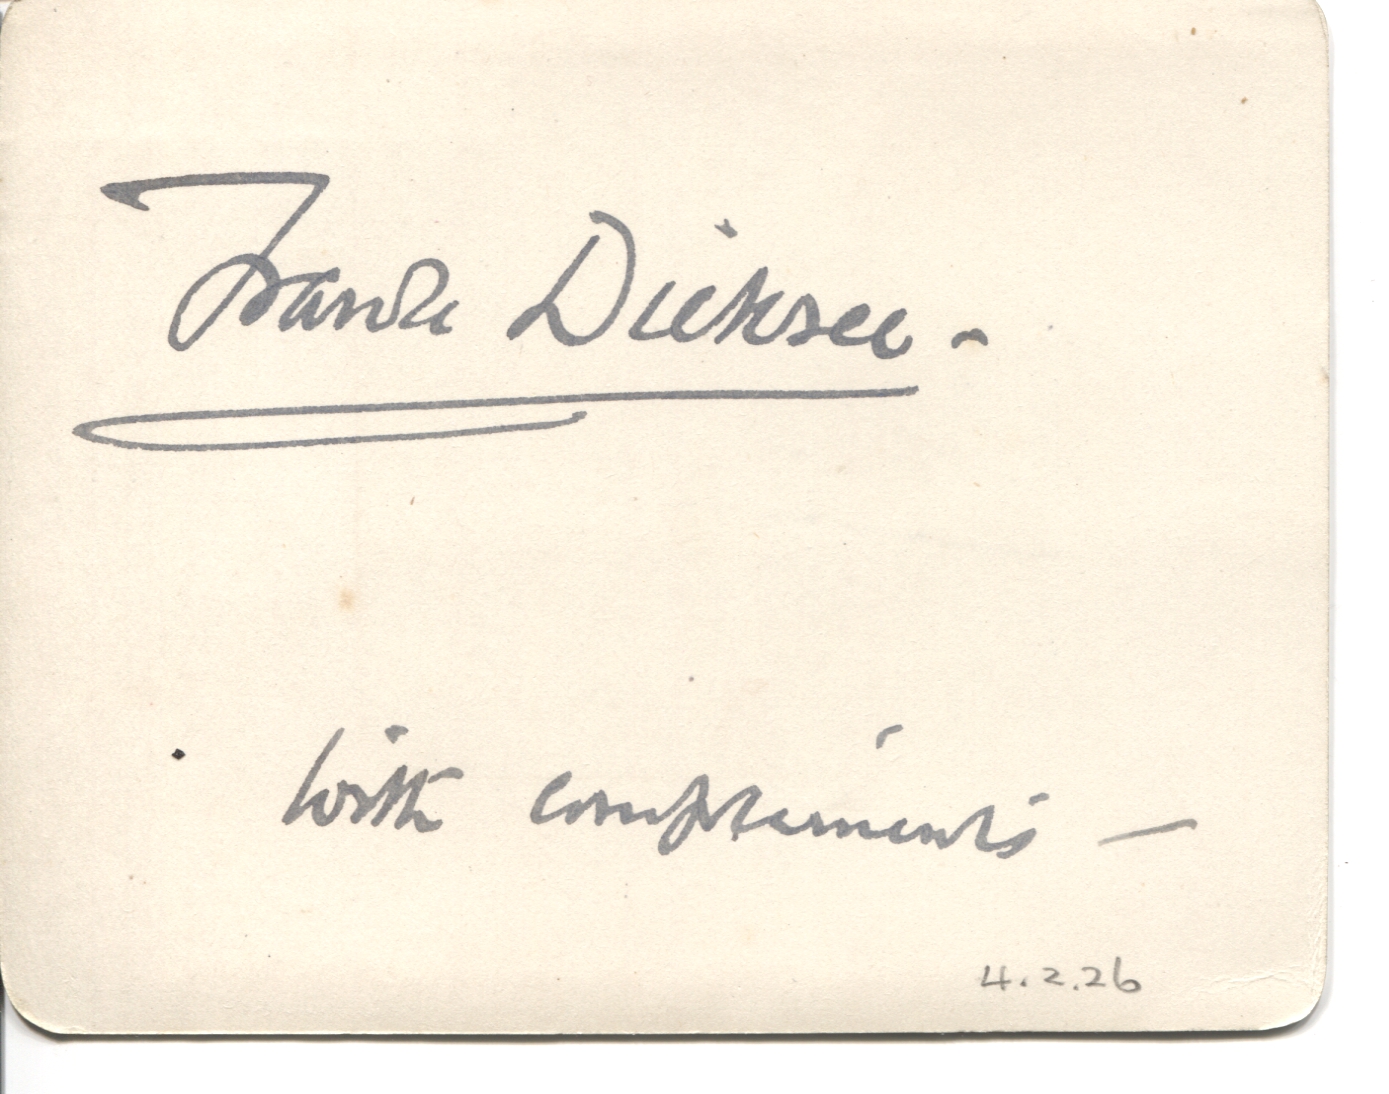 Frank Dicksee -
with compliments —
4.2.26